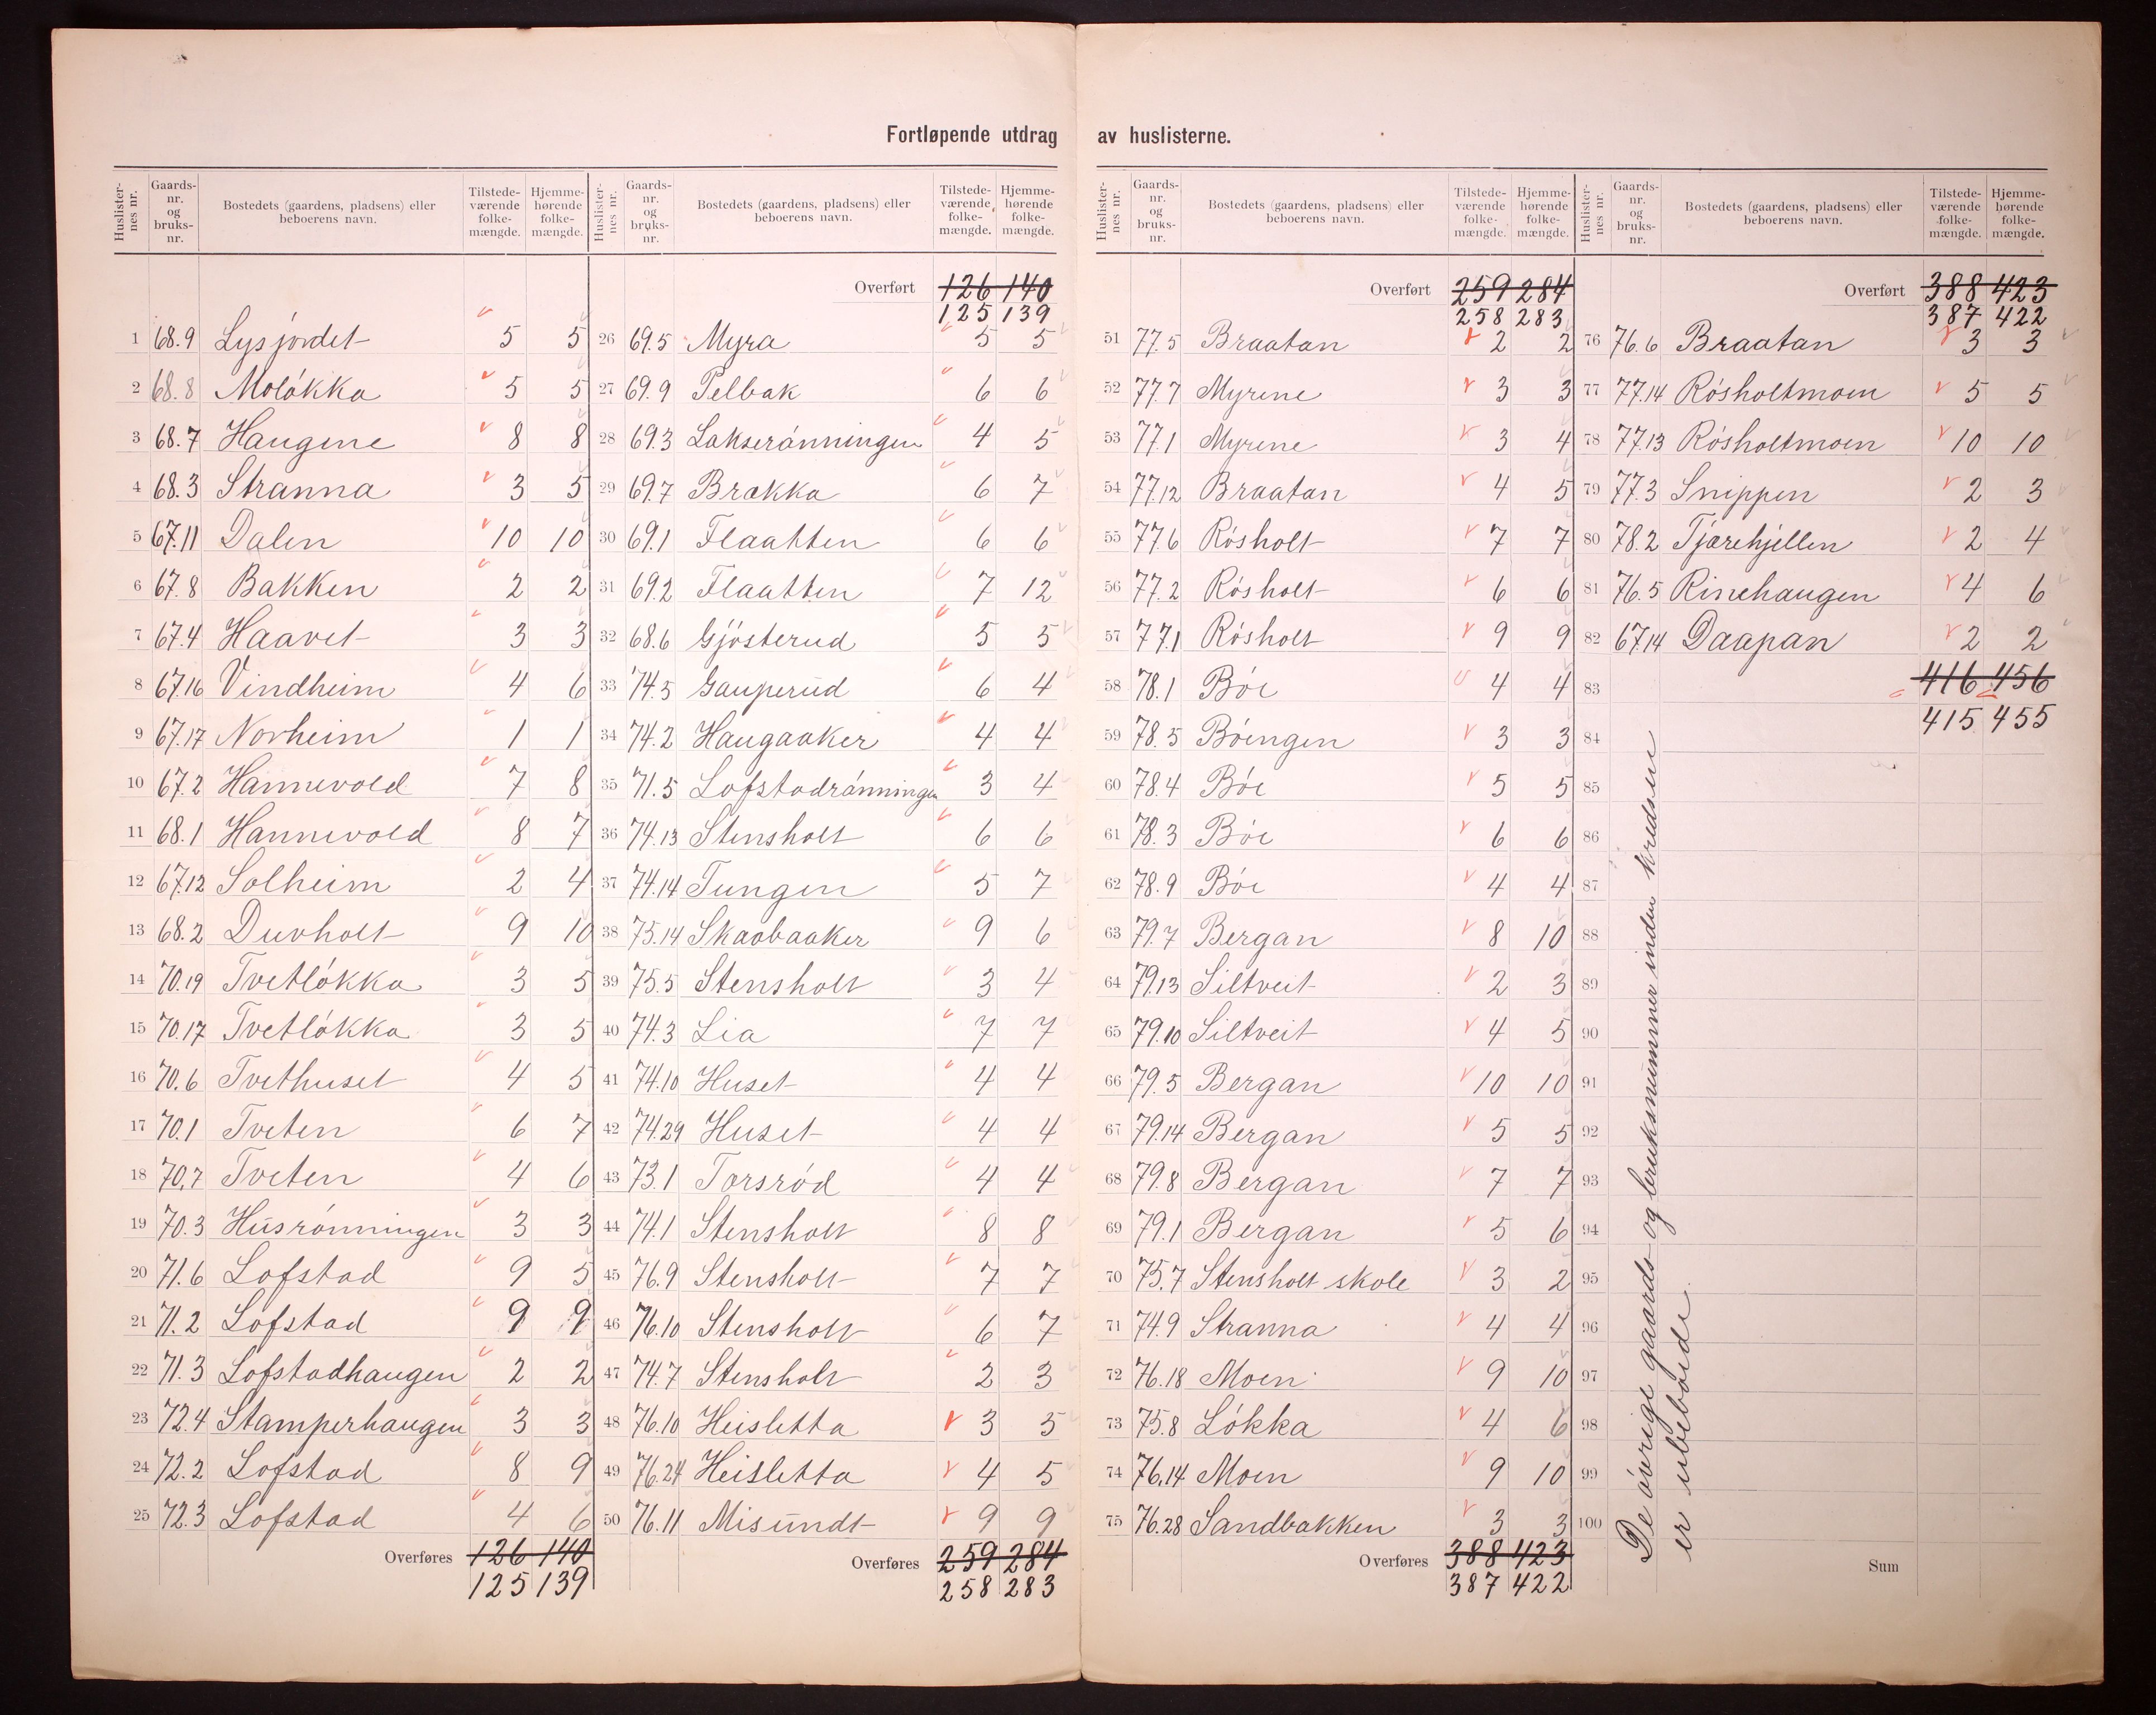 Fortløpende utdrag av huslisterne.
Huslisternes nr. Gaards-nr. og bruks-nr. Bostedets (gaardens, pladsens) eller beboerens navn. Tilstede-værende folke-mængde. Hjemme-hørende folke-mængde.
1 68.9 Lysjordet 5 5
2 68.8 Moløkka 5 5
3 68.7 Haugene 8 8
4 68.3 Stranna 3 5
5 67.11 Dalen 10 10
6 67.8 Bakken 2 2
7 67.4 Haavet 3 3
8 67.16 Vindheim 4 6
9 67.17 Norheim 1 1
10 67.2 Hannevold 7 8
11 68.1 Hannevold 8 7
12 67.12 Solheim 2 4
13 68.2 Duvholt 9 10
14 70.19 Tvetløkka 3 5
15 70.17 Tvetløkka 3 5
16 70.6 Tvethuset 4 5
17 70.1 Tveten 6 7
18 70.7 Tveten 4 6
19 70.3 Husrønningen 3 3
20 71.6 Lofstad 9 5
21 71.2 Lofstad 9 9
22 71.3 Lofstadhaugen 2 2
23 72.4 Stamperhaugen 3 3
24 72.2 Lofstad 8 9
25 72.3 Lofstad 4 6
Overføres 126 140
125 139
Huslisternes nr. Gaards-nr. og bruks-nr. Bostedets (gaardens, pladsens) eller beboerens navn. Tilstede-værende folke-mængde. Hjemme-hørende folke-mængde.
Overført 126 140
125 139
26 69.5 Myra 5 5
27 69.9 Pelbak 6 6
28 69.3 Lakserønningen 4 5
29 69.7 Brække 6 7
30 69.1 Flaatten 6 6
31 69.2 Flaatten 7 12
32 68.6 Gjøsterud 5 5
33 74.5 Gauperud 6 4
34 74.2 Haugaaker 4 4
35 71.5 Lofstadrønningen 3 4
36 74.13 Stensholt 6 6
37 74.14 Tungen 5 7
38 75.14 Skaabaaker 9 6
39 75.5 Stensholt 3 4
40 74.3 Lia 7 7
41 74.10 Huset 4 4
42 74.29 Huset 4 4
43 73.1 Torsrød 4 4
44 74.1 Stensholt 8 8
45 76.9 Stensholt 7 7
46 76.10 Stensholt 6 7
47 74.7 Stensholt 2 3
48 76.10 Heisletta 3 5
49 76.24 Heisletta 4 5
50 76.11 Misundt 9 9
Overføres 259 284
258 283
Huslisternes nr. Gaards-nr. og bruks-nr. Bostedets (gaardens, pladsens) eller beboerens navn. Tilstede-værende folke-mængde. Hjemme-hørende folke-mængde.
Overført 259 284
258 283
51 77.5 Braatan 2 2
52 77.7 Myrene 3 3
53 77.1 Myrene 3 4
54 77.12 Braatan 4 5
55 77.6 Røsholt 7 7
56 77.2 Røsholt 6 6
57 77.1 Røsholt 9 9
58 78.1 Bøe 4 4
59 78.5 Bøengen 3 3
60 78.4 Bøe 5 5
61 78.3 Bøe 6 6
62 78.9 Bøe 4 4
63 79.7 Bergan 8 10
64 79.13 Siltveit 2 3
65 79.10 Siltveit 4 5
66 79.5 Bergan 10 10
67 79.14 Bergan 5 5
68 79.8 Bergan 7 7
69 79.1 Bergan 5 6
70 75.7 Stensholt skole 3 2
71 74.9 Stranna 4 4
72 76.18 Moen 9 10
73 75.8 Løkka 4 6
74 76.14 Moen 9 10
75 76.28 Sandbakken 3 3
Overføres 388 423
387 422
Huslisternes nr. Gaards-nr. og bruks-nr. Bostedets (gaardens, pladsens) eller beboerens navn. Tilstede-værende folke-mængde. Hjemme-hørende folke-mængde.
Overført 388 423
387 422
76 76.6 Braatan 3 3
77 77.14 Røsholtmoen 5 5
78 77.13 Røsholtmoen 10 10
79 77.3 Snippen 2 3
80 78.2 Tjærehjellen 2 4
81 76.5 Rinehaugen 4 6
82 67.14 Daapan 2 2
83 416 456
415 455
84
85
86
87
88
89
90
91
92
93
94
95
96
97
98
99
100
Sum
De øvrige gaards- og bruksnummer inden kredsen
er ubeboede.